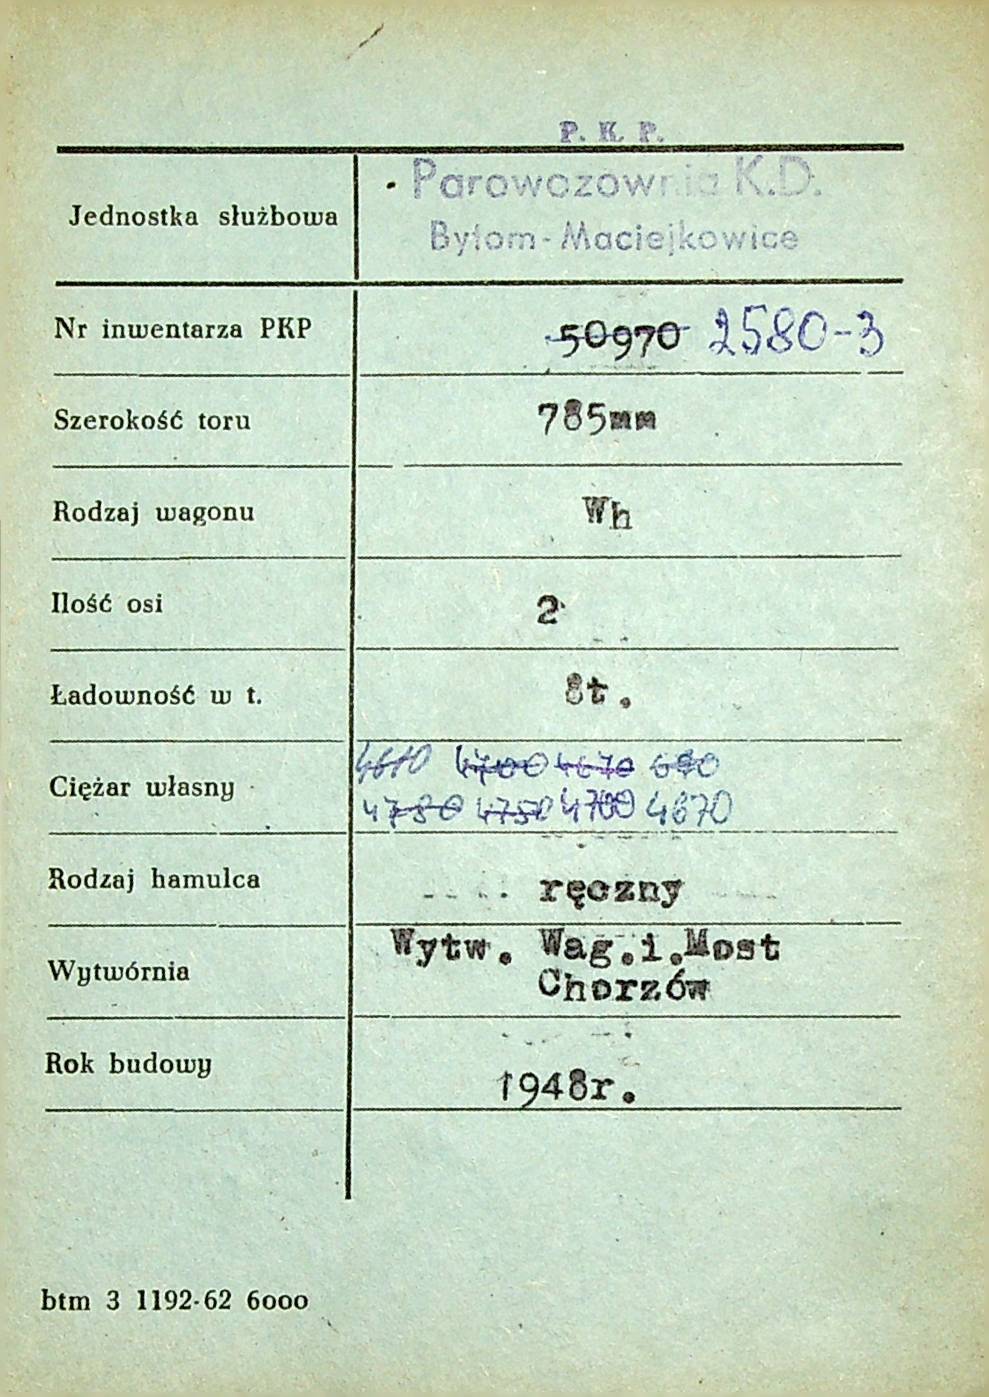 P. K. P.
Jednostka służbowa
Parowozownia K.D.
Bytom-Maciejkowice
Nr inwentarza PKP 50970 2580-3
Szerokość toru 785mm
Rodzaj wagonu Wh
Ilość osi 2
Ładowność w t. 8t.
Ciężar własny
4610 4700 4670
4780 4750 4700 4670
Rodzaj hamulca ręczny
Wytwórnia
Wytw. Wag.i.Most
Chorzów
Rok budowy 1948r.
btm 3 1192-62 6000